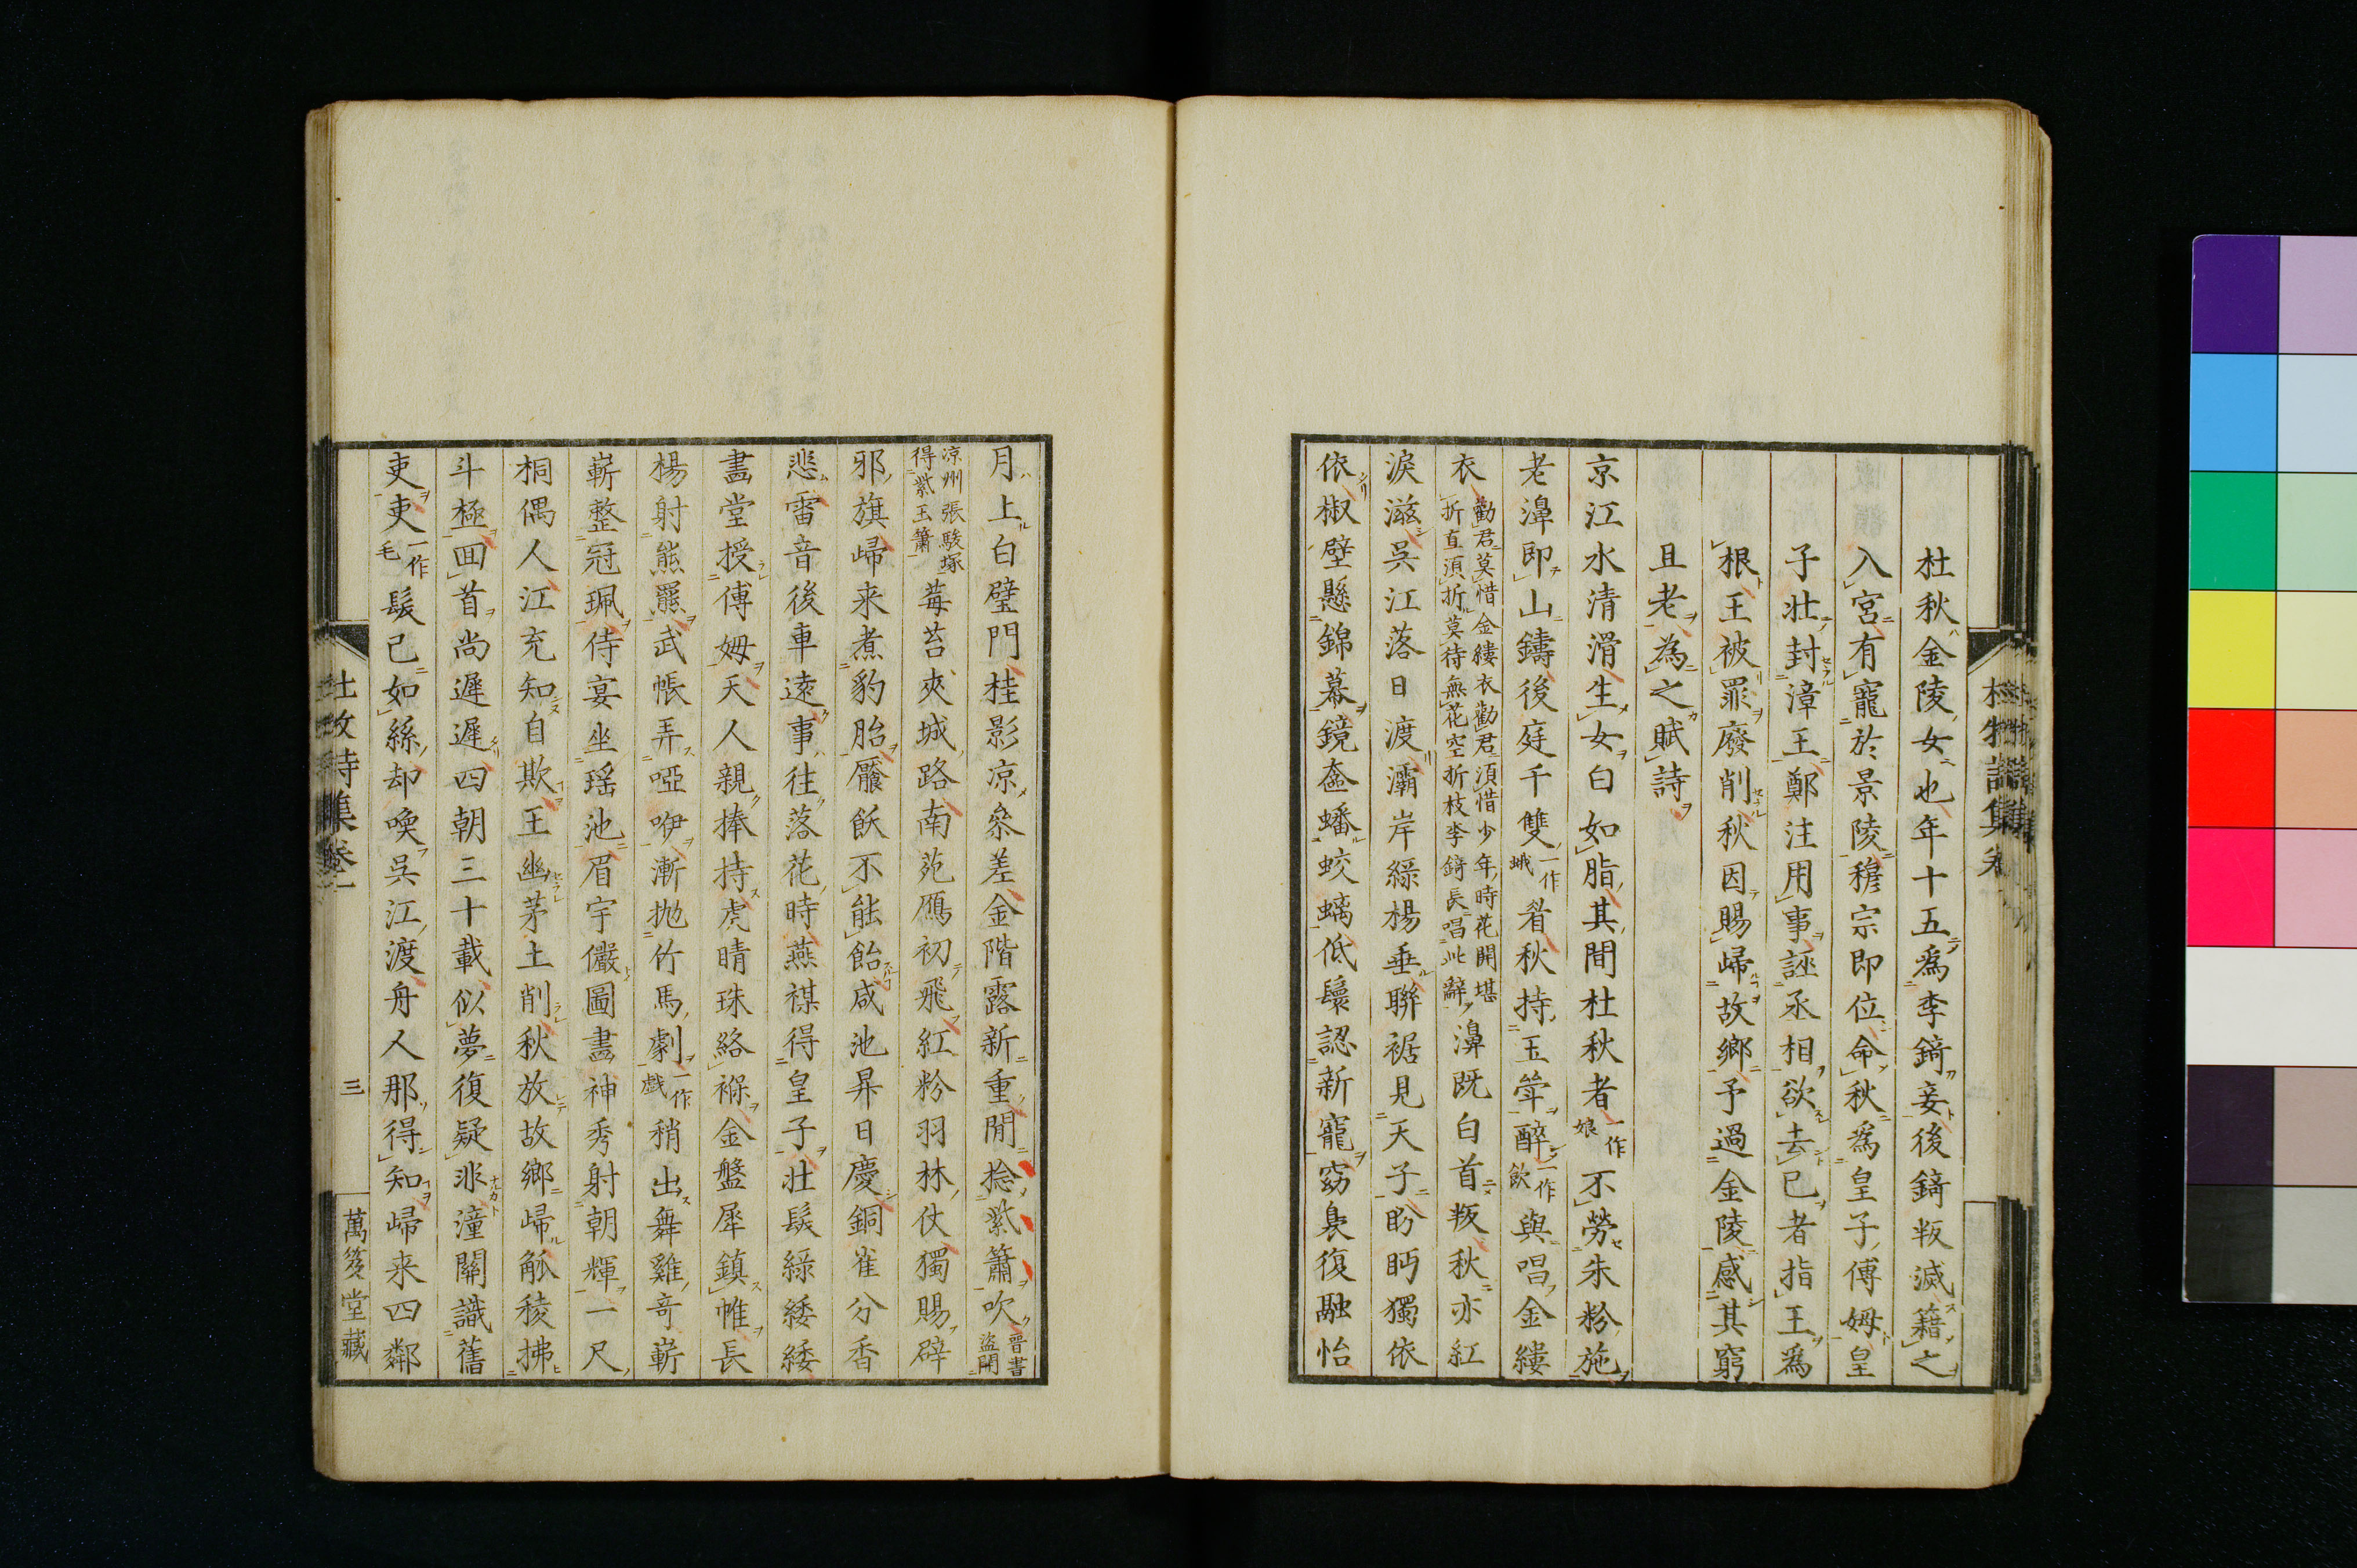 杜秋金陵女也年十五爲李錡妾後錡叛滅籍之
入宮有寵於景陵穆宗即位命秋爲皇子傅姆皇
子壯封漳王鄭注用事誣丞相欲去已者指王爲
根王被罪廢削秋因賜歸故鄉予過金陵感其窮
且老為之賦詩
京江水清滑生女白如脂其間杜秋者一作娘不勞朱粉施
老濞即山鑄後庭千雙一作蛾眉秋持玉斝醉一作飲與唱金縷
衣勸君莫惜金縷衣勸君須惜少年時花開堪折直須折莫待無花空折枝李錡長唱此辭濞既白首叛秋亦紅
淚滋吳江落日渡灞岸綠楊垂聯裾見天子盼眄獨依
依椒壁懸錦幕鏡奩蟠蛟螭低鬟認新寵窈裊復融怡
月上白璧門桂影凉參差金階露新重閒捻紫簫吹晉書盜開
凉州張駿塚得紫玉簫莓苔夾城路南苑鴈初飛紅粉羽林仗獨賜辟
邪旗歸来煮豹胎饜飫不能飴咸池昇日慶銅雀分香
悲雷音後車遠事往落花時燕禖得皇子壯髮綠緌緌
畫堂授傅姆天人親捧持虎睛珠絡褓金盤犀鎮帷長
楊射熊羆武帳弄啞咿漸抛竹馬劇一作戲稍出舞雞奇嶄
嶄整冠珮侍宴坐瑶池眉宇儼圖畫神秀射朝輝一尺
桐偶人江充知自欺王幽茅土削秋放故鄉歸觚稜拂
斗極回首尚遲遲四朝三十載似夢復疑非潼關識舊
吏吏一作毛髮已如絲却喚吳江渡舟人那得知歸来四鄰
杜牧詩集卷一
三
萬笈堂藏